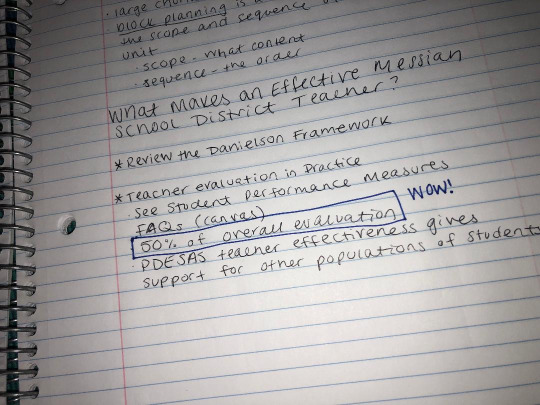 · large
· block planning is a
the scope and sequence
unit
· scope - what content
· sequence - the order
What Makes an Effective Messian
School District Teacher?
* Review the Danielson Framework
* Teacher evaluation in Practice
· See Student Performance Measures
FAQs (canvas)
50% of overall evaluation WOW!
· PDESAS teacher effectiveness gives
support for other populations of students